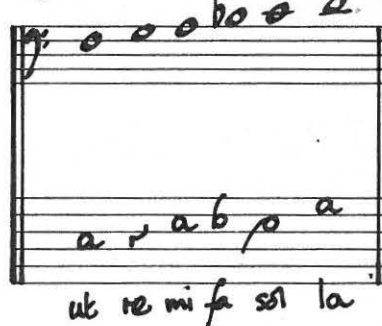 a r a b a
ut re mi fa sol la